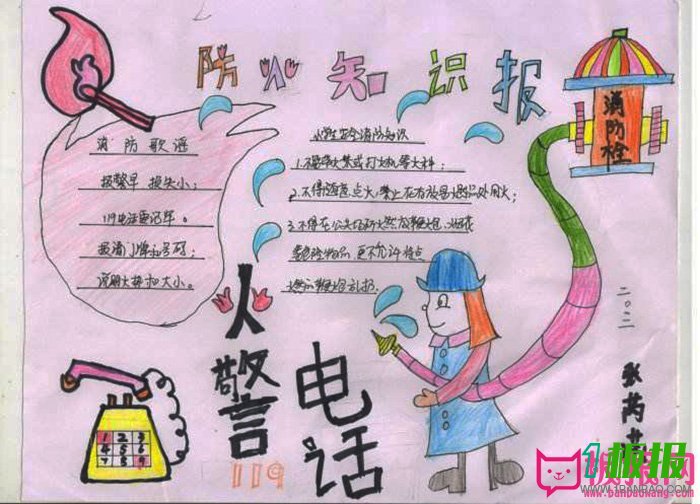 防火知识报
消防栓
消防歌谣
报警早 损失小；
119电话要记牢。
报清门牌和号码；
说明火势和大小。
小学生安全消防知识
1.不要带火柴或打火机等火种；
2.不得随意点火，禁止在有易燃品处用火；
3.不得在公共场所燃放鞭炮、烟花
更不允许将点
燃的鞭炮乱扔。
火警
119
电话
1 2 3
二〇一一
张芮
板报网
www.banbaowang.com